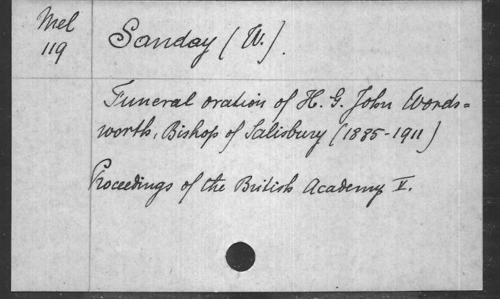 Mel
119
Sanday (W.).
Funeral oration of H. G. John Words=
worth, Bishop of Salisbury (1885-1911)
Proceedings of the British Academy V.